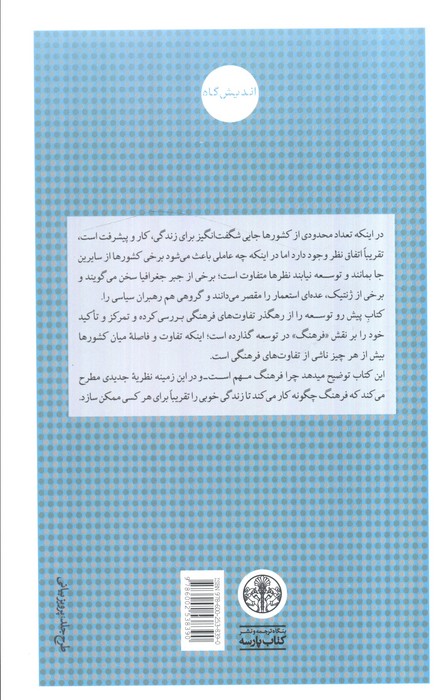 اندیش‌گاه
در اینکه تعداد محدودی از کشورها جایی شگفت‌انگیز برای زندگی، کار و پیشرفت است،
تقریباً اتفاق نظر وجود دارد اما در اینکه چه عاملی باعث می‌شود برخی کشورها از سایرین
جا بمانند و توسعه نیابند نظرها متفاوت است؛ برخی از جبر جغرافیا سخن می‌گویند و
برخی از ژنتیک، عده‌ای استعمار را مقصر می‌دانند و گروهی هم رهبران سیاسی را.
کتاب پیش رو توسعه را از رهگذر تفاوت‌های فرهنگی بررسی کرده و تمرکز و تأکید
خود را بر نقش «فرهنگ» در توسعه گذارده است؛ اینکه تفاوت و فاصلهٔ میان کشورها
بیش از هر چیز ناشی از تفاوت‌های فرهنگی است.
این کتاب توضیح میدهد چرا فرهنگ مهم است ـ و در این زمینه نظریهٔ جدیدی مطرح
می‌کند که فرهنگ چگونه کار می‌کند تا زندگی خوبی را تقریباً برای هر کسی ممکن سازد.
طرح جلد: پرویز بیانی
9786002538390
بنگاه ترجمه و نشر
کتاب پارسه